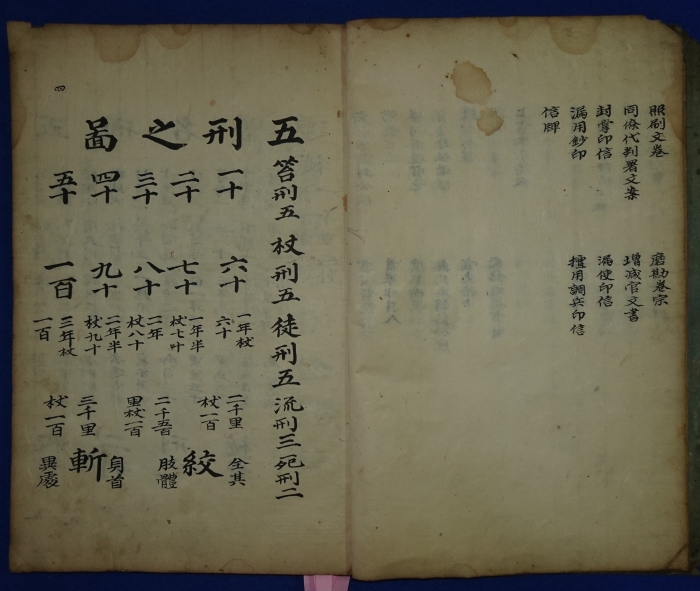 照刷文卷　磨勘卷宗
同僚代判署文案　增减官文書
封掌印信　漏使印信
漏用鈔印　擅用調兵印信
信牌
五刑之啚
笞刑五　一十　二十　三十　四十　五十
杖刑五　六十　七十　八十　九十　一百
徒刑五　一年杖六十　一年半杖七十　二年杖八十　二年半杖九十　三年杖一百
流刑三　二千里杖一百　二千五百里杖一百　三千里杖一百
死刑二　絞　全其肢體　斬　身首異處
四